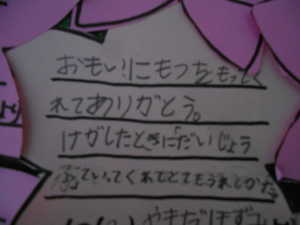 おもいにもつをもってく
れてありがとう。
けがしたときに「だいじょう
ぶ」っていってくれてとてもうれしかった。
やまだ